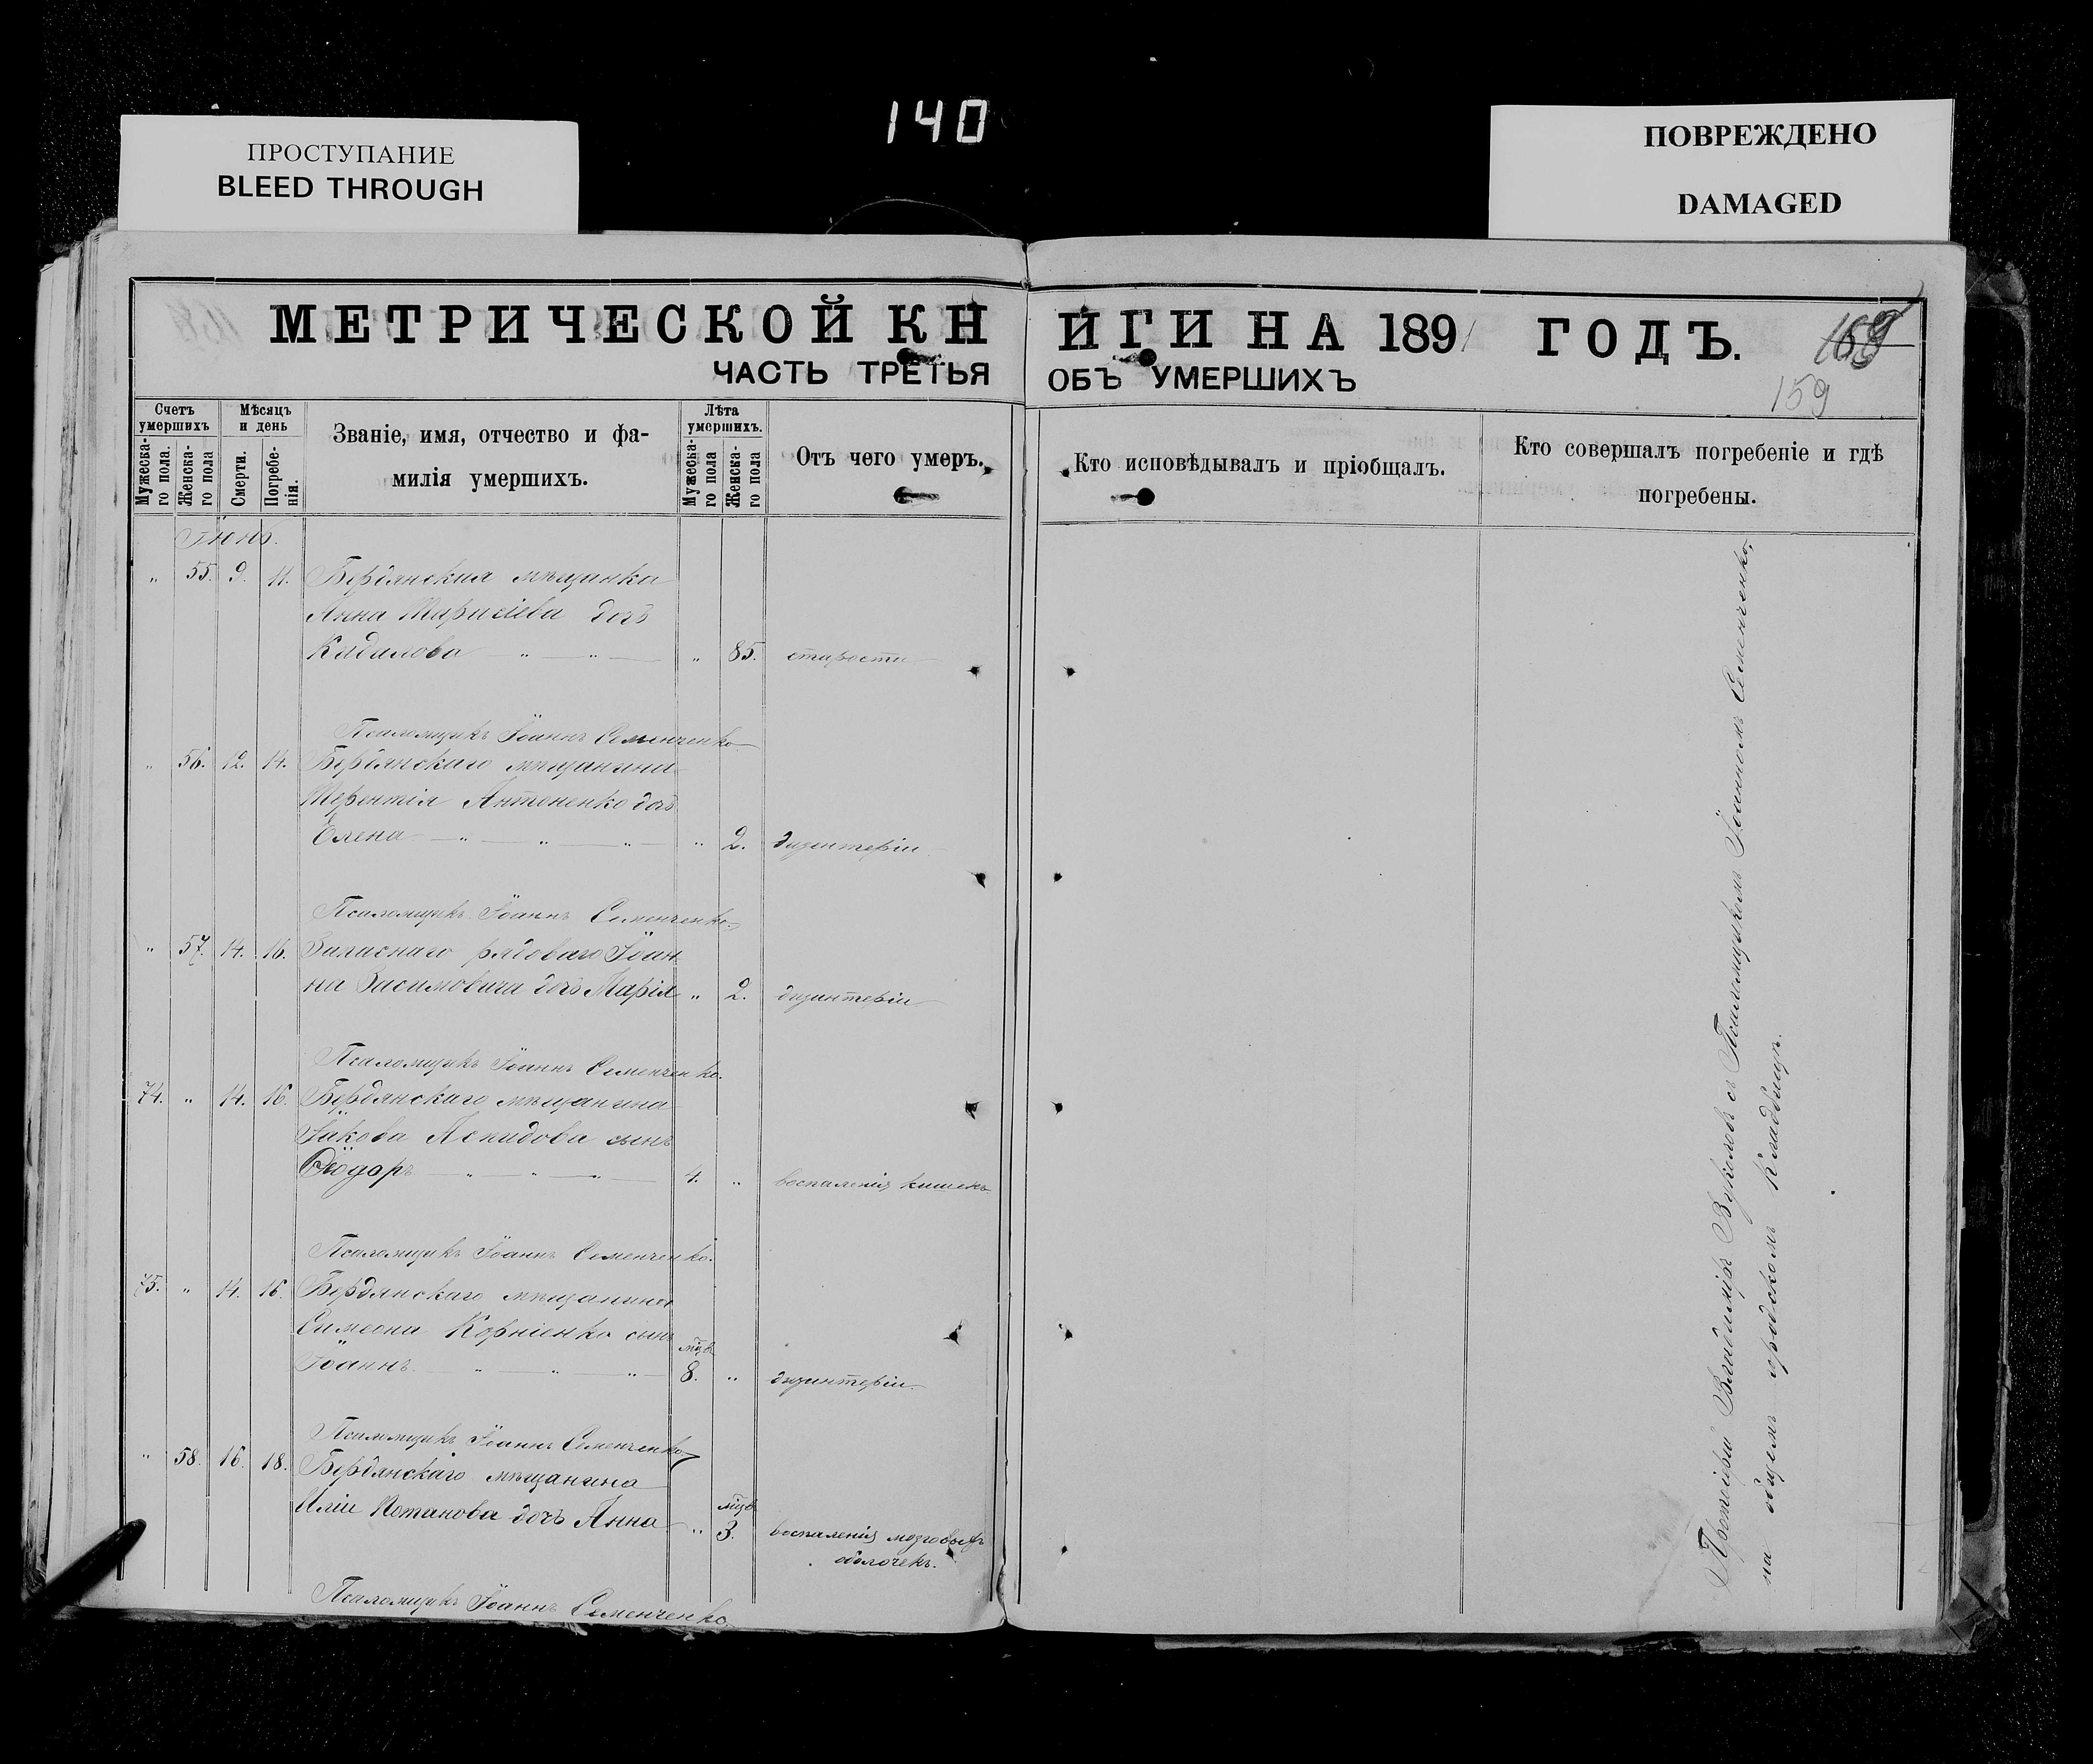 140
ПРОСТУПАНИЕ
BLEED THROUGH
ПОВРЕЖДЕНО
DAMAGED
МЕТРИЧЕСКОЙ КНИГИ НА 1891 ГОДЪ.
159
ЧАСТЬ ТРЕТЬЯ ОБЪ УМЕРШИХЪ
Счетъ умершихъ
Мужеска-го пола.
Женска-го пола
Мѣсяцъ и день
Смерти.
Погребе-нія.
Званіе, имя, отчество и фа-
милія умершихъ.
Лѣта умершихъ.
Мужеска-го пола
Женска-го пола
Отъ чего умеръ.
Кто исповѣдывалъ и пріобщалъ.
Кто совершалъ погребеніе и гдѣ
погребены.
Іюнь.
" 55. 9. 11. Бердянская мѣщанка
Анна дочь
" 85. старости
Псаломщикъ Іоаннъ Семенченко
" 56. 12. 14. Бердянскаго мѣщанина
Терентія Антоненко дочь
Елена " 2. дизентеріи
Псаломщикъ Іоаннъ Семенченко.
" 57. 14. 16. Запаснаго рядоваго Іоан
на дочь Марія " 2. дизентеріи
Псаломщикъ Іоаннъ Семенченко.
74. " 14. 16. Бердянскаго мѣщанина
Іакова сынъ
Ѳеодоръ 4. " воспаленія кишекъ
Псаломщикъ Іоаннъ Семенченко.
75. " 14. 16. Бердянскаго мѣщанина
Симеона Корніенко сынъ
Іоаннъ мѣс. 8. " дизентеріи
Псаломщикъ Іоаннъ Семенченко
" 58. 16. 18. Бердянскаго мѣщанина
Иліи Потапова дочь Анна " мѣс. 3. воспаленія мозговыхъ
оболочекъ.
Псаломщикъ Іоаннъ Семенченко
Протоіерей Владиміръ съ Псаломщикомъ Іоанномъ Семенченко,
на общемъ городскомъ кладбищѣ.